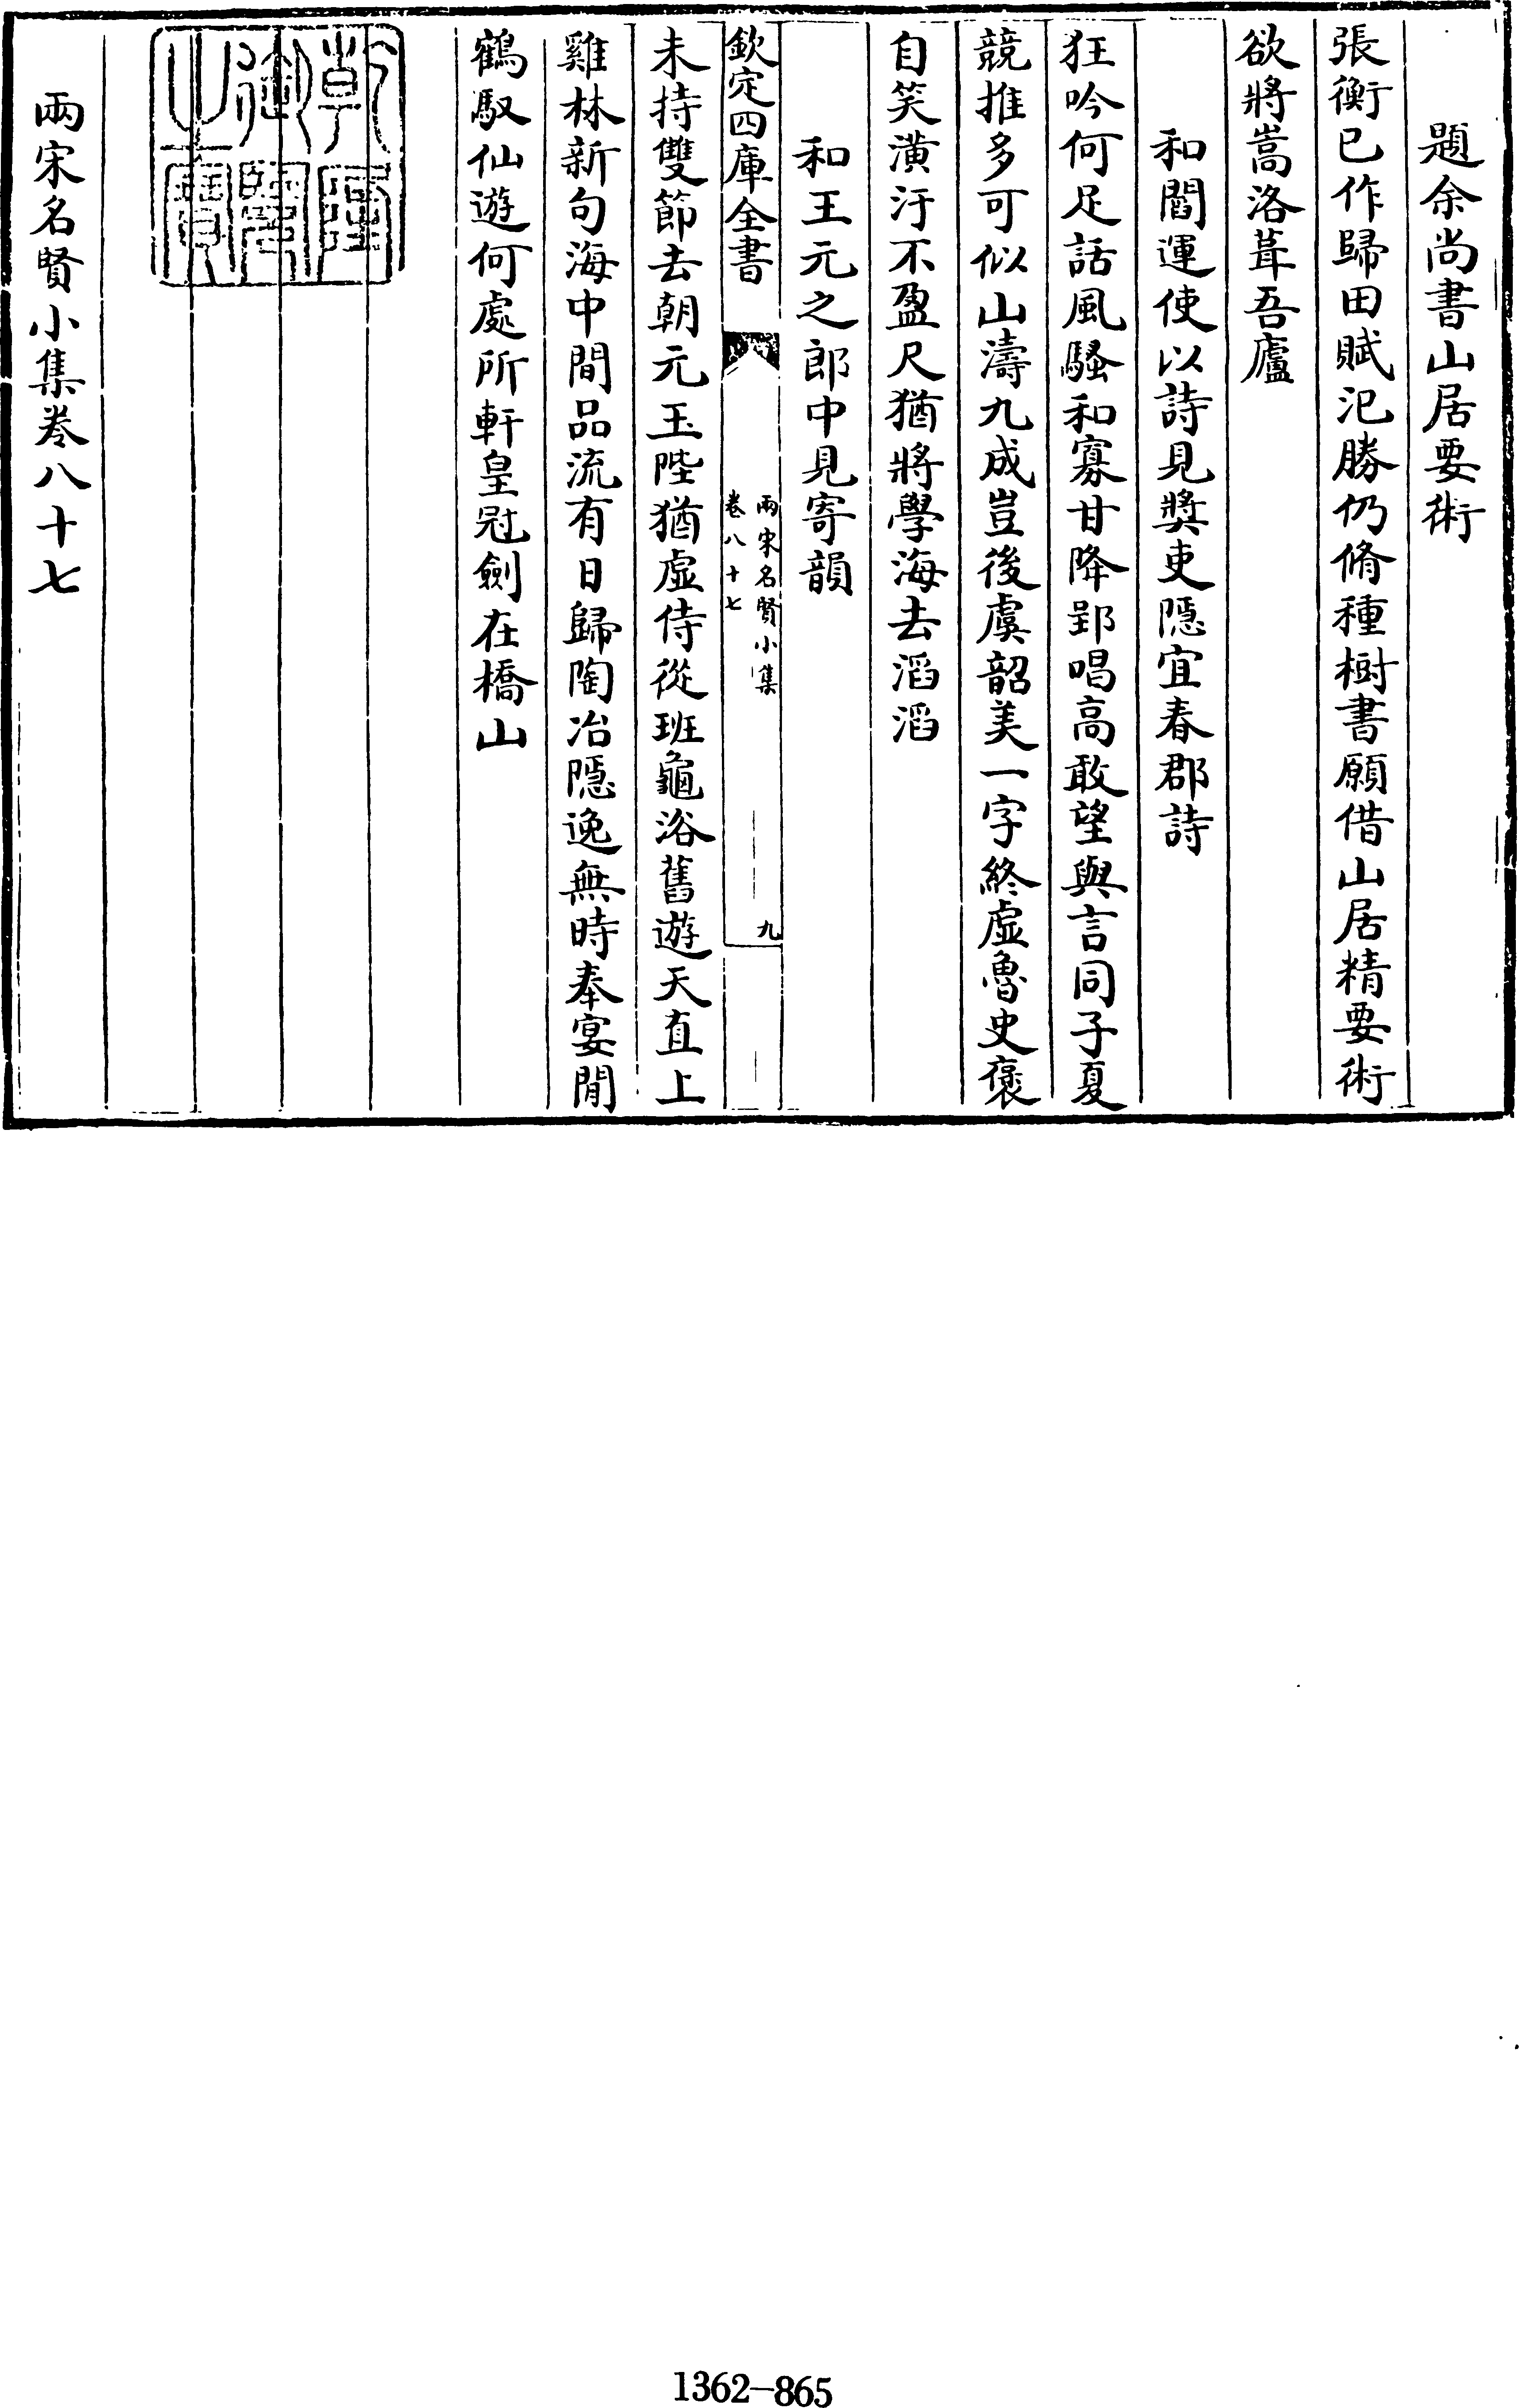 題余尚書山居要術
張衡已作歸田賦汜勝仍脩種樹書願借山居精要術
欲將嵩洛葺吾廬
和閻運使以詩見奬吏隠宜春郡詩
狂吟何足話風騷和寡甘降郢唱高敢望與言同子夏
競推多可似山濤九成豈後虞韶美一字終虛魯史褒
自笑潢汙不盈尺猶將學海去滔滔
和王元之郎中見寄韻
欽定四庫全書
兩宋名賢小集
卷八十七
九
未持雙節去朝元玉陛猶虛侍從班龜浴舊遊天直上
雞林新句海中間品流有日歸陶冶隠逸無時奉宴閒
鶴馭仙遊何處所軒皇冠劍在橋山
乾隆御覽之寶
兩宋名賢小集卷八十七
1362-865